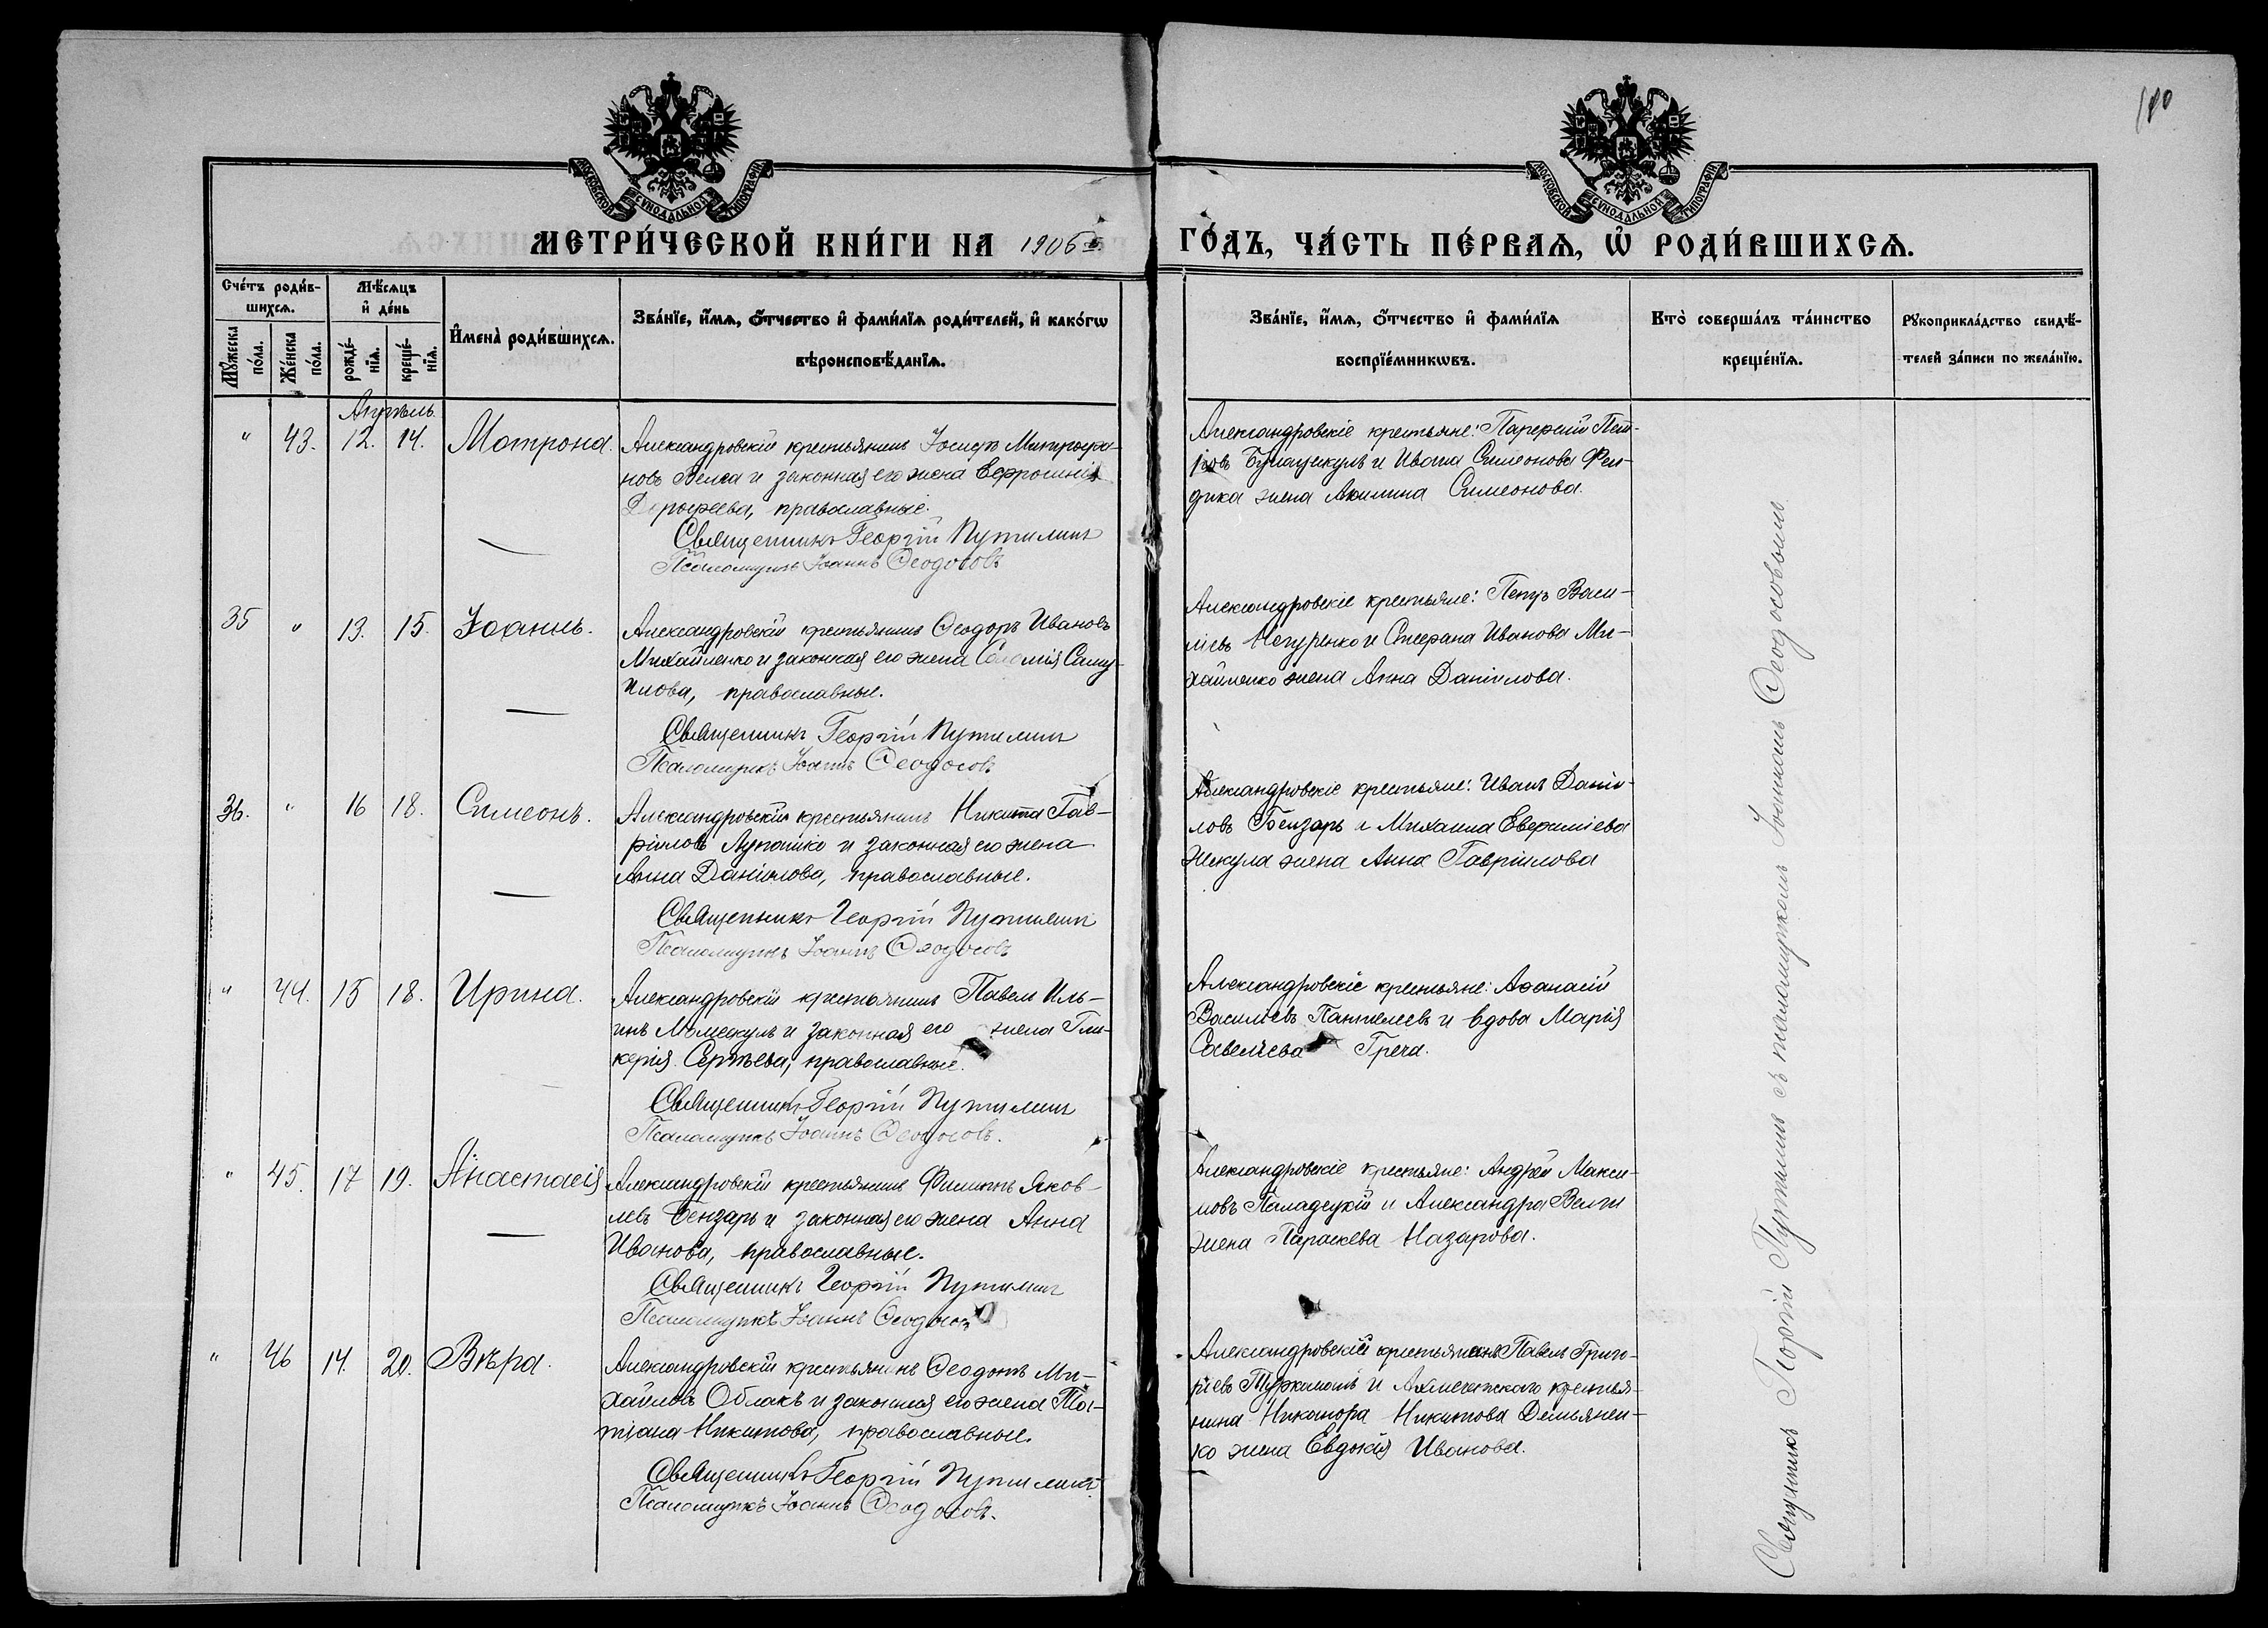 180
МОСКОВСКОЙ СѴНОДАЛЬНОЙ ТИПОГРАФІИ
МОСКОВСКОЙ СѴНОДАЛЬНОЙ ТИПОГРАФІИ
МЕТРИ́ЧЕСКОЙ КНИ́ГИ НА 1906
ГО́ДЪ, ЧА́СТЬ ПЕ́РВАѦ, Ѡ҆ РОДИ́ВШИХСѦ.
Сче́тъ роди́в-
шихсѧ.
Мꙋ́жеска по́ла.
Же́нска по́ла.
Мѣ́сѧцъ
и҆ де́нь
рожде́-
нїѧ.
креще́-
нїѧ.
И҆мена̀ роди́вшихсѧ.
Зва́нїе, и҆́мѧ, ѻ҆́тчество и҆ фами́лїѧ роди́телей, и҆ како́гѡ
вѣроисповѣ́данїѧ.
Зва́нїе, и҆́мѧ, ѻ҆́тчество и҆ фами́лїѧ
воспрїе́мникѡвъ.
Кто̀ соверша́лъ та́инство
креще́нїѧ.
Рꙋкоприкла́дство свидѣ́-
телей за́писи по жела́нїю.
Апрѣль.
" 43. 12. 14. Матрона.
Александровскій крестьянинъ Іосифъ Митрофа-
новъ Велга и законная его жена Ефросинія
Дорофеева, православные.
Священникъ Георгій Путилинъ
Псаломщикъ Іоаннъ Ѳеодосовъ
Александровскіе крестьяне: Парфеній Пет-
ровъ и Ивана Симеонова
жена Акилина Симеонова.
35 " 13. 15. Іоаннъ.
Александровскій крестьянинъ Ѳеодоръ Ивановъ
Михайленко и законная его жена Соломія Саму-
илова, православные.
Священникъ Георгій Путилинъ
Псаломщикъ Іоаннъ Ѳеодосовъ
Александровскіе крестьяне: Петръ Васи-
ліевъ Чегуренко и Стефана Иванова Ми-
хайленко жена Анна Даніилова.
36. " 16 18. Симеонъ.
Александровскій крестьянинъ Никита Гав-
ріиловъ и законная его жена
Анна Даніилова, православные.
Священникъ Георгій Путилинъ
Псаломщикъ Іоаннъ Ѳеодосовъ
Александровскіе крестьяне: Иванъ Даніи-
ловъ Бензарь и Михаила Евфиміева
Жекула жена Анна Гавріилова
" 44. 15 18. Ирина.
Александровскій крестьянинъ Павелъ Иль-
инъ и законная его жена Гли-
керія Сергѣева, православные.
Священникъ Георгій Путилинъ
Псаломщикъ Іоаннъ Ѳеодосовъ.
Александровскіе крестьяне: Аѳанасій
Василіевъ Пантелеевъ и вдова Марія
Савеліева Греча.
" 45. 17 19. Анастасія
Александровскій крестьянинъ Филиппъ Яков-
левъ Бензарь и законная его жена Анна
Иванова, православные.
Священникъ Георгій Путилинъ
Псаломщикъ Іоаннъ Ѳеодосовъ
Александровскіе крестьяне: Андрей Макси-
мовъ Паладецкій и Александра Велги
жена Параскева Назарова.
" 46 14. 20. Вѣра.
Александровскій крестьянинъ Ѳеодотъ Ми-
хайловъ Облакъ и законная его жена Та-
тіана Никитова, православные.
Священникъ Георгій Путилинъ
Псаломщикъ Іоаннъ Ѳеодосовъ.
Александровскій крестьянинъ Павелъ Григо-
ріевъ и крестья-
нина Никанора Никитова Демьянен-
ко жена Евдокія Иванова.
Священникъ Георгій Путилинъ съ псаломщикомъ Іоанномъ Ѳеодосовымъ